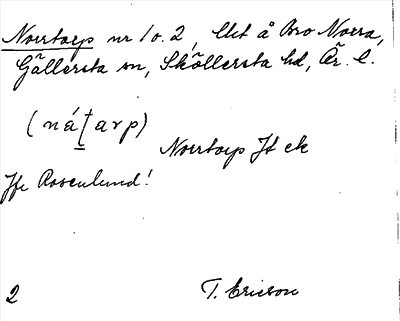 Norrtorp nr 1 o. 2, Utet å Bro Norra,
Gällersta sn, Sköllersta hd, Är. l.
(nátarp)
Norrtorp Jt ek
Jfr Rosenlund!
2 T. Ericson